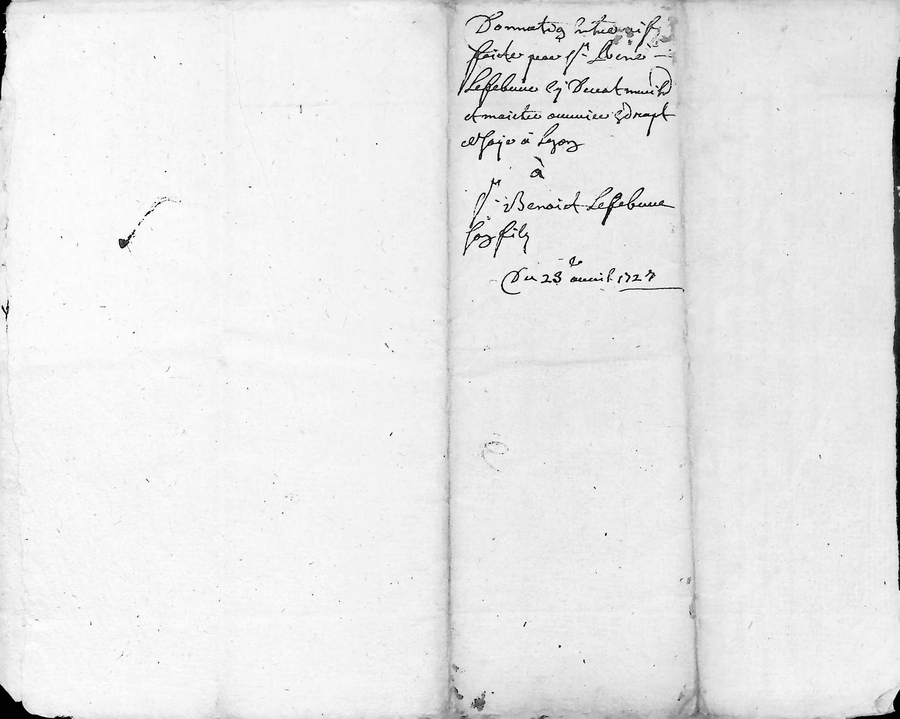 Donnation entre vifs
faicte par Sr René
Lefebure cy devant marchd
et maitre ouvrier en drapt
de soye à Lyon
à
Sr Benoist Lefebure
son fils
Du 23e avril 1727